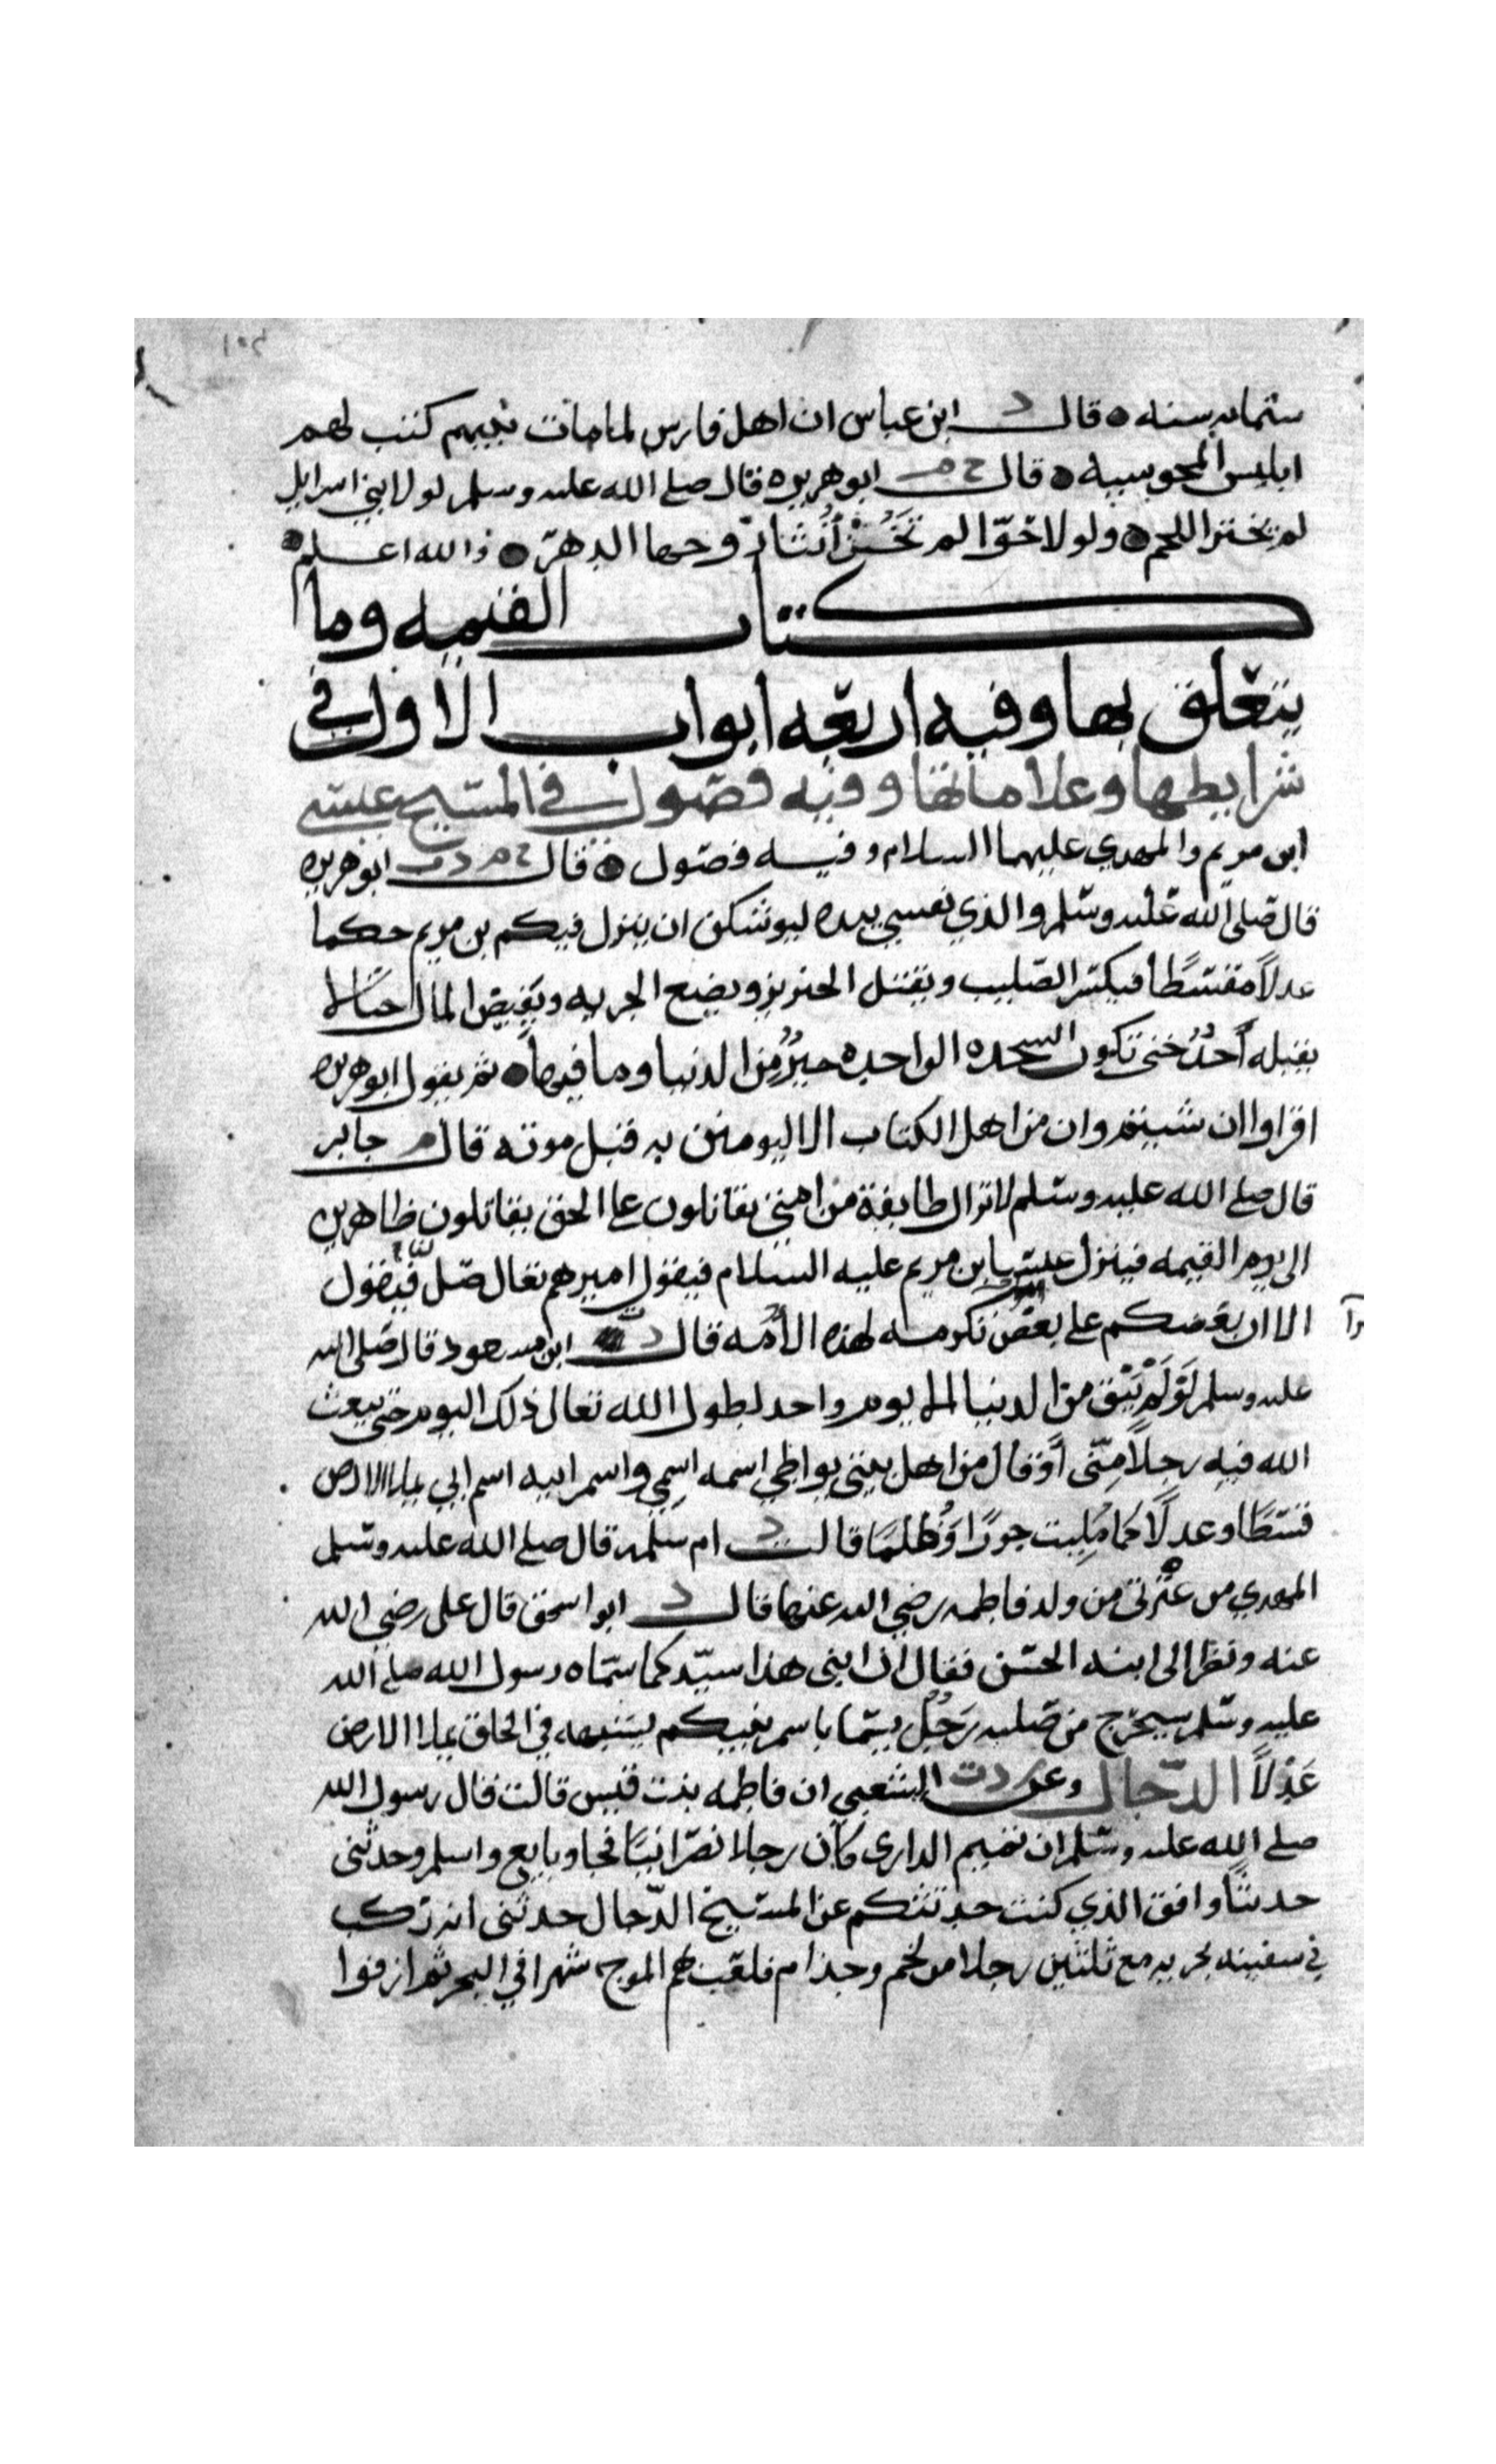 ١٠٢
ستمايه سنه ٥ قال د ابن عباس ان اهل فارس لما مات نبيهم كتب لهم
ابليس المجوسيه ٥ قال خ م ابو هريره قال صلى الله عليه وسلم لولا بني اسرايل
لم يخنز اللحم ٥ ولولا حوّا لم تَخُنْ أُنثا زوجها الدهرَ ٥ والله اعلم
كتاب القيمه وما
يتعلق بها وفيه اربعه ابواب الاول في
شرايطها وعلاماتها وفيه فصول في المسيح عيسى
ابن مريم والمهدي عليهما السلام وفيه فصول ٥ قال خ م د ت ابو هريره
قال صلى الله عليه وسلم والذي نفسي بيده ليوشكن ان ينزل فيكم بن مريم حكما
عدلاً مقسطًا فيكسر الصليب ويقتل الخنزير ويضع الجزيه ويَفِيض المال حتى لا
يقبله أحدٌ حتى تكون السجده الواحده خيرٌ مِن الدنيا وما فيها ٥ ثم يقول ابو هريره
اقراوا ان شيتم وان من اهل الكتاب الا ليومنن به قبل موته قال م جابر
قال صلى الله عليه وسلم لا تزال طايفة من امتي يقاتلون على الحق يقاتلون ظاهرين
الى يوم القيمه فينزل عيسى بن مريم عليه السلام فيقول اميرهم تعال صل لنا فيقول
الا ان بعضكم على بعض تكرمه لهذه الأمه قال د ابن مسعود قال صلى الله
عليه وسلم لَوْ لَمْ يَبْق مِن الدنيا الا يوم واحد لطول الله تعالى ذلك اليوم حتى يبعث
الله فيه رجلاً مِنّى أَوْ قال من اهل بيتى يواطي اسمه اسمِي واسم ابيه اسم ابي يملا الارض
قسطًا وعدلًا كما مُلِيت جورًا وَظُلمًا قالت د ام سلمه قال صلى الله عليه وسلم
المهدي من عِتْرتى من ولد فاطمه رضي الله عنها قال د ابو اسحق قال على رضي الله
عنه ونظر الى ابنه الحسن فقال ان ابنى هذا سيّد كما سمّاه رسول الله صلى الله
عليه وسلم سيخرج من صلبه رَجُلٌ يسمّا باسم نبيكم يشبهه في الخلق يملا الارض
عَدْلاً الدجال وعن م د ت الشعبي ان فاطمه بنت قيس قالت قال رسول الله
صلى الله عليه وسلم ان تميم الدارى كان رجلا نصرانيًا فجا وبايع واسلم وحدثنى
حديثًا وافق الذي كنت حدثتكم عن المسيح الدّجال حدثنى انه ركب
في سفينه بحريه مع ثلثين رجلا من لخم وجذام فلعب بهم الموج شهرا في البحر ثم ارفوا